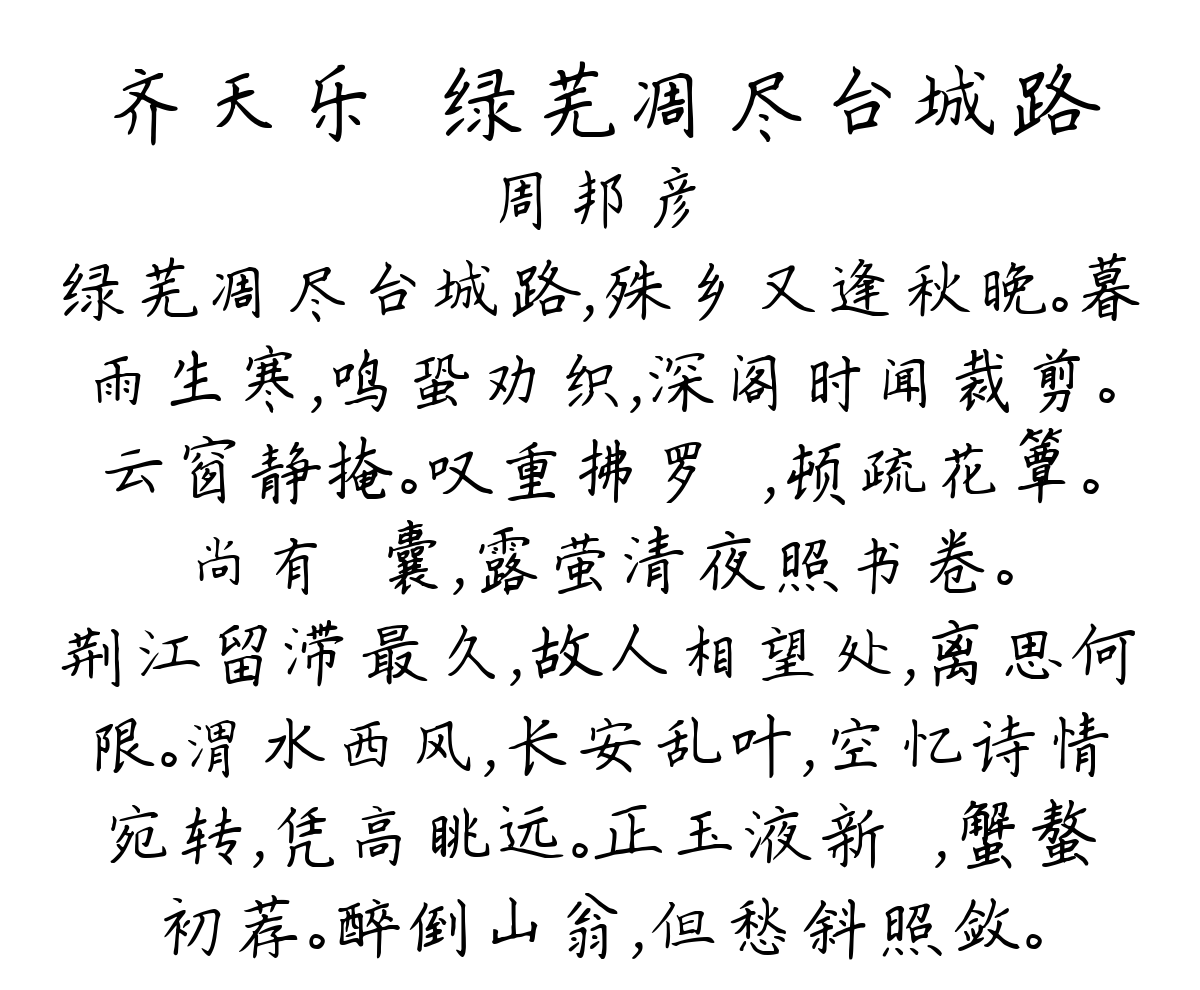 齐天乐 绿芜凋尽台城路
周邦彦
绿芜凋尽台城路,殊乡又逢秋晚。暮
雨生寒,鸣蛩劝织,深阁时闻裁剪。
云窗静掩。叹重拂罗 ,顿疏花簟。
尚有 囊,露萤清夜照书卷。
荆江留滞最久,故人相望处,离思何
限。渭水西风,长安乱叶,空忆诗情
宛转,凭高眺远。正玉液新 ,蟹螯
初荐。醉倒山翁,但愁斜照敛。